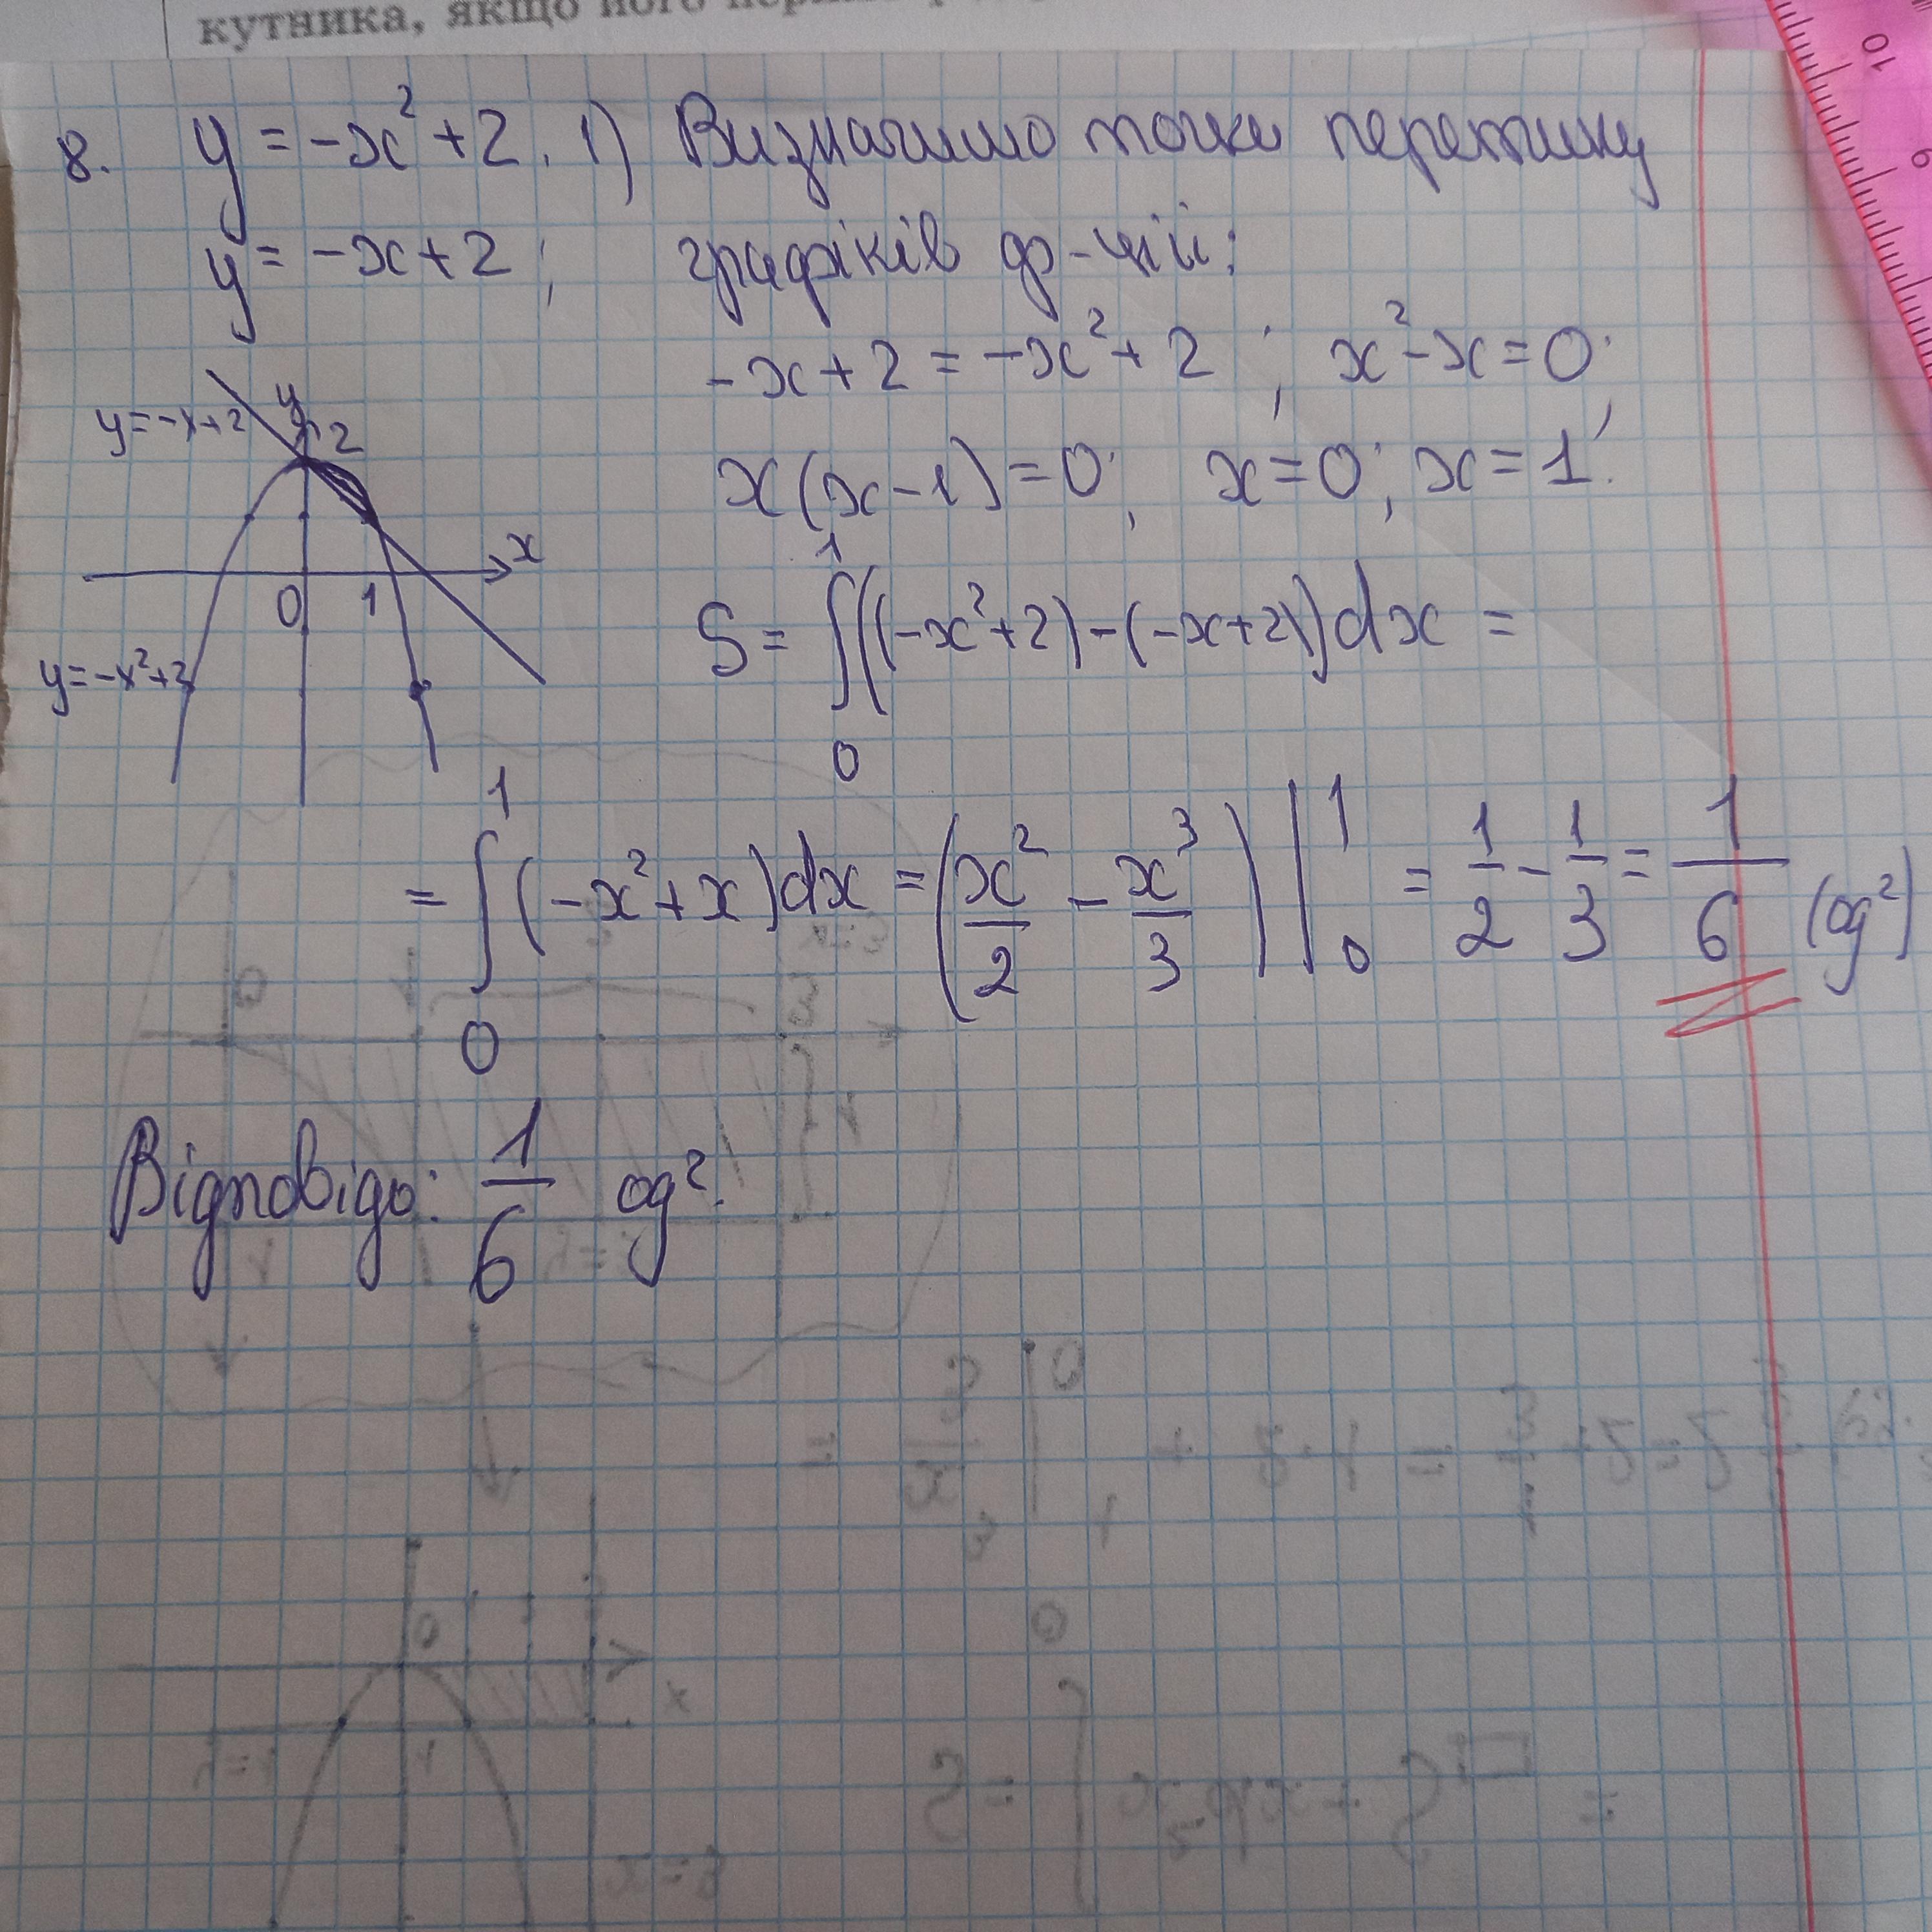 кутника, якщо його
8. y = -x² + 2. 1) Визначимо точки перетину
y = -x + 2; графіків ф-цій:
-x + 2 = -x² + 2; x² - x = 0;
x(x - 1) = 0; x = 0; x = 1.
y = -x + 2
y
2
x
0 1
y = -x² + 2
S = ∫₀¹((-x² + 2) - (-x + 2))dx =
= ∫₀¹(-x² + x)dx = (x²/2 - x³/3)|₀¹ = 1/2 - 1/3 = 1/6 (од²)
Відповідь: 1/6 од².
10
9